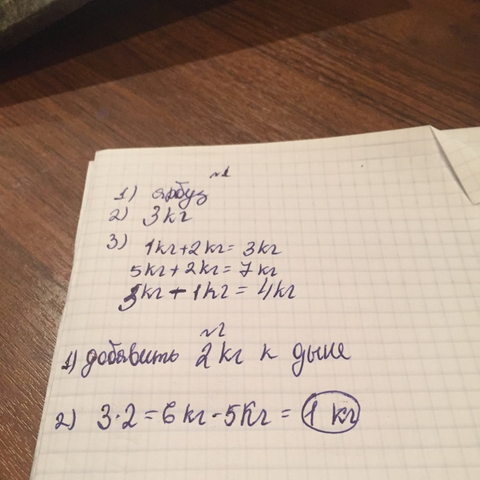 №1
1) арбуз
2) 3 kг
3)
1kг+2kг= 3kг
5kг+2kг=7kг
3kг+1kг=4kг
№2
1) добавить 2kг к дыне
2) 3·2=6kг-5Kг= 1 kг